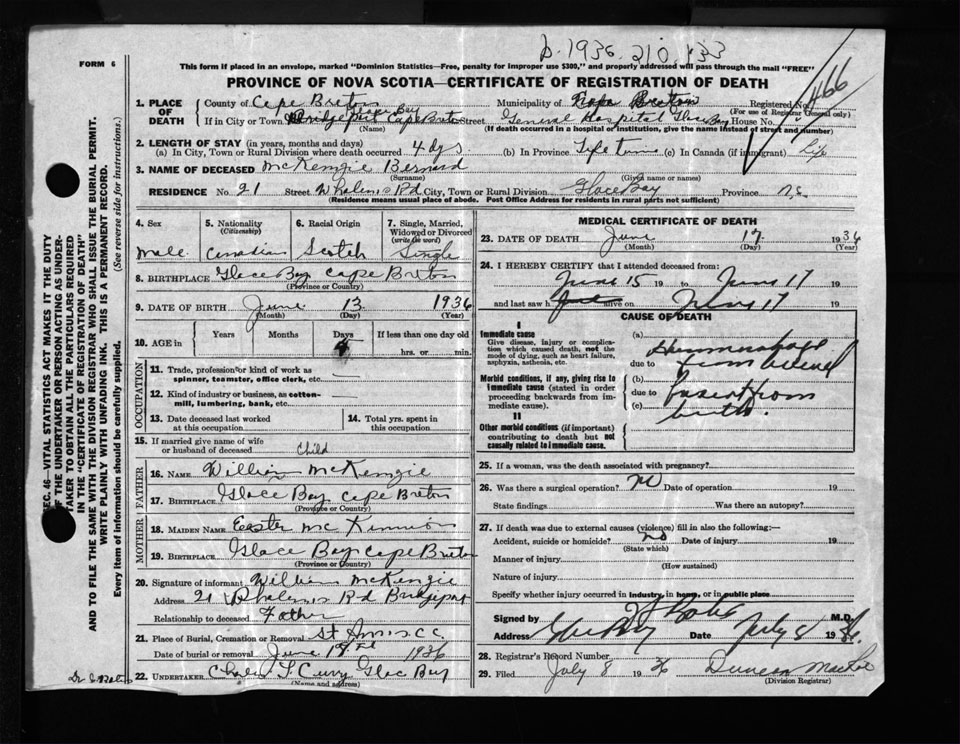 D. 1936 210 133
FORM 6
This form if placed in an envelope, marked "Dominion Statistics—Free, penalty for improper use $300," and properly addressed will pass through the mail "FREE"
PROVINCE OF NOVA SCOTIA—CERTIFICATE OF REGISTRATION OF DEATH
466
1. PLACE OF DEATH County of Cape Breton Municipality of Cape Breton Registered No.
(For use of Registrar General only)
Glace Bay
If in City or Town Bridgeport Cape Breton Street General Hospital Glace Bay House No.
(Name) (If death occurred in a hospital or institution, give the name instead of street and number)
2. LENGTH OF STAY (in years, months and days)
(a) In City, Town or Rural Division where death occurred 4 dys. (b) In Province Life time (c) In Canada (if immigrant) life
3. NAME OF DECEASED McKenzie Bernard
(Surname) (Given name or names)
RESIDENCE No. 21 Street Whalens Rd City, Town or Rural Division Glace Bay Province N.S.
(Residence means usual place of abode. Post Office Address for residents in rural parts not sufficient)
4. Sex 5. Nationality (Citizenship) 6. Racial Origin 7. Single, Married, Widowed or Divorced (write the word)
Male Canadian Scotch Single
8. BIRTHPLACE Glace Bay Cape Breton
(Province or Country)
9. DATE OF BIRTH June 13 1936
(Month) (Day) (Year)
10. AGE in Years Months Days If less than one day old
hrs. or min.
OCCUPATION
11. Trade, profession or kind of work as spinner, teamster, office clerk, etc.
12. Kind of industry or business, as cotton-mill, lumbering, bank, etc.
13. Date deceased last worked at this occupation
14. Total yrs. spent in this occupation
15. If married give name of wife or husband of deceased Child
FATHER
16. NAME William McKenzie
17. BIRTHPLACE Glace Bay Cape Breton
(Province or Country)
MOTHER
18. MAIDEN NAME Easter McKinnon
19. BIRTHPLACE Glace Bay Cape Breton
(Province or Country)
20. Signature of informant William McKenzie
Address 21 Whalens Rd Bridgeport
Relationship to deceased Father
21. Place of Burial, Cremation or Removal St Anns C.C.
Date of burial or removal June 1936
22. UNDERTAKER Curry Glace Bay
(Name and address)
MEDICAL CERTIFICATE OF DEATH
23. DATE OF DEATH June 17 1936
(Month) (Day) (Year)
24. I HEREBY CERTIFY that I attended deceased from:
June 15 19 to June 17 19
and last saw h alive on June 17 19
CAUSE OF DEATH
I
Immediate cause
Give disease, injury or complication which caused death, not the mode of dying, such as heart failure, asphyxia, asthenia, etc.
(a)
due to
Morbid conditions, if any, giving rise to immediate cause (stated in order proceeding backwards from immediate cause).
(b)
due to
(c)
from birth.
II
Other morbid conditions (if important) contributing to death but not causally related to immediate cause.
25. If a woman, was the death associated with pregnancy?
26. Was there a surgical operation? No Date of operation 19
State findings Was there an autopsy?
27. If death was due to external causes (violence) fill in also the following:—
Accident, suicide or homicide? No Date of injury 19
(State which)
Manner of injury
(How sustained)
Nature of injury
Specify whether injury occurred in industry, in home, or in public place
Signed by M.D.
Address Glace Bay Date July 8 1936.
28. Registrar's Record Number
29. Filed July 8 1936 Duncan
(Division Registrar)
SEC. 46—VITAL STATISTICS ACT MAKES IT THE DUTY
OF THE UNDERTAKER OR PERSON ACTING AS UNDER-
TAKER TO OBTAIN ALL THE PARTICULARS REQUIRED
IN THE "CERTIFICATE OF REGISTRATION OF DEATH"
AND TO FILE THE SAME WITH THE DIVISION REGISTRAR WHO SHALL ISSUE THE BURIAL PERMIT.
WRITE PLAINLY WITH UNFADING INK. THIS IS A PERMANENT RECORD.
Every item of information should be carefully supplied. (See reverse side for instructions.)